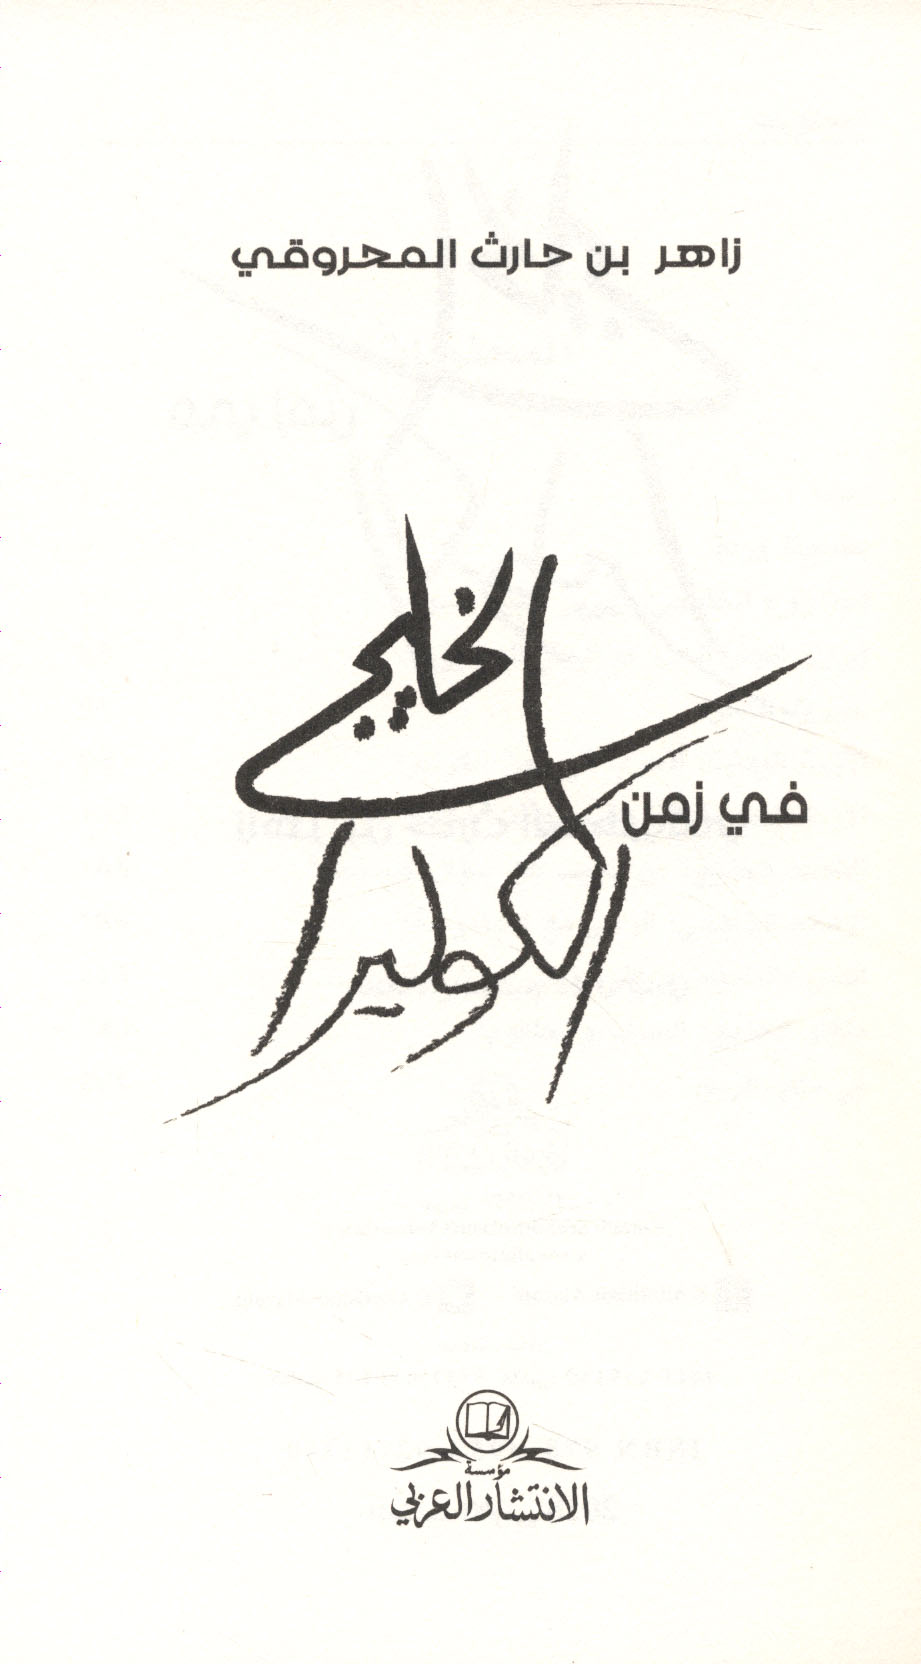 زاهر بن حارث المحروقي
الخليج
في زمن
الكوليرا
مؤسسة
الانتشار العربي